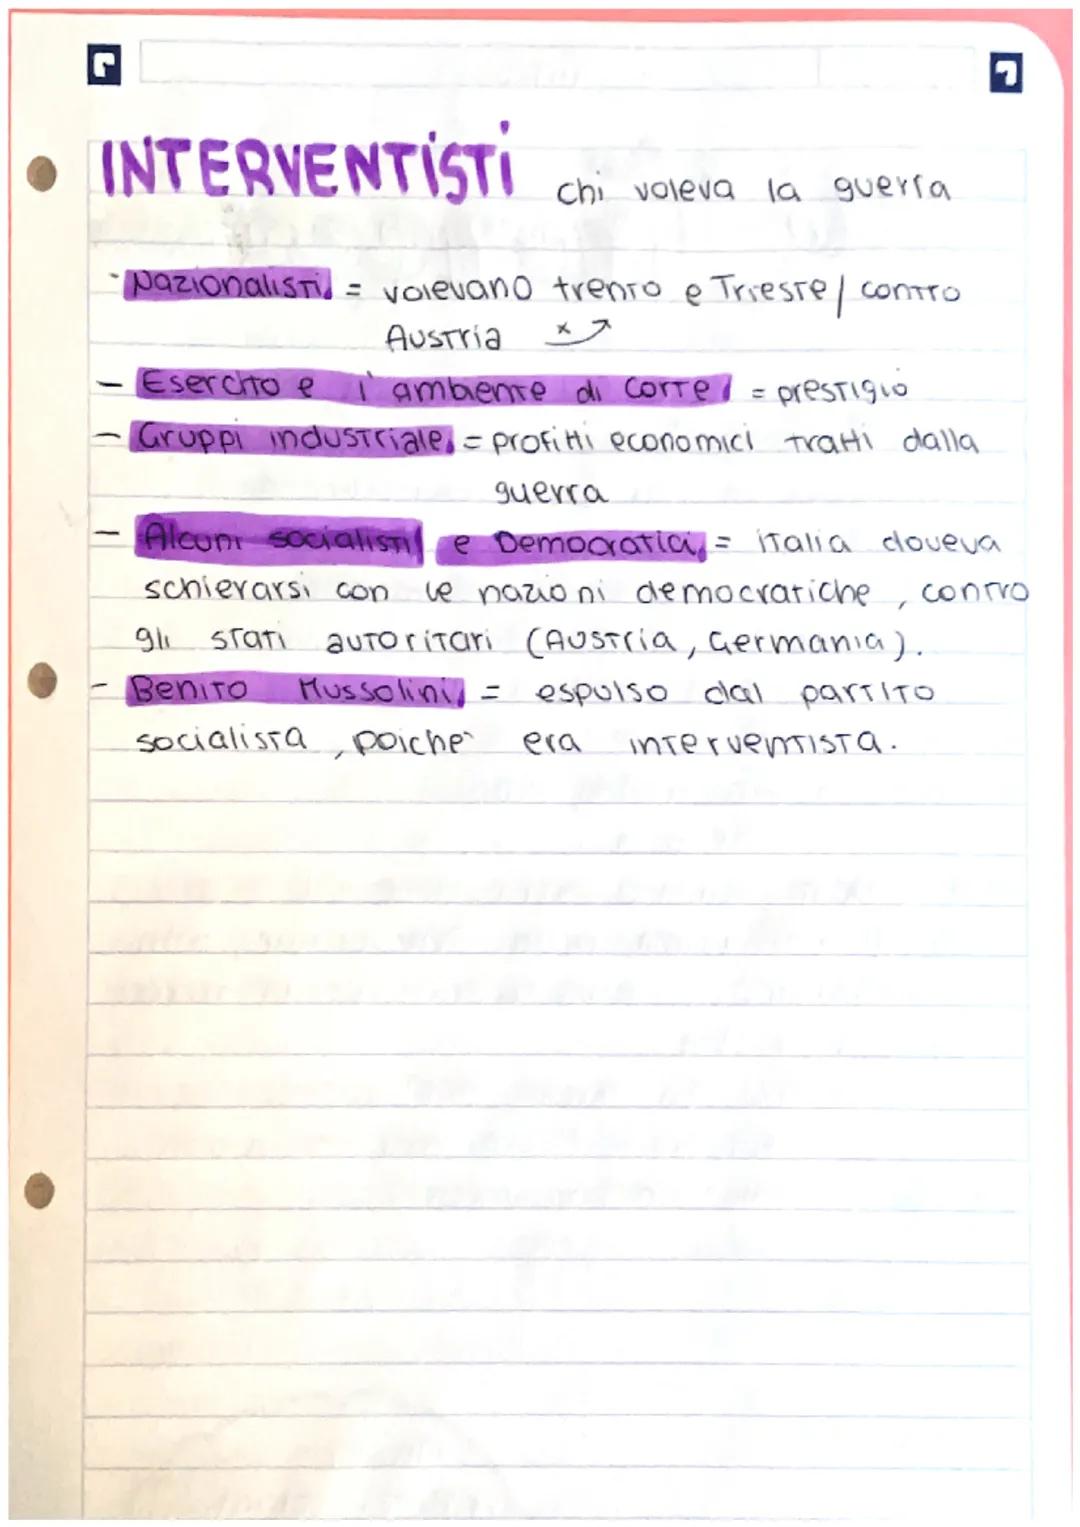 INTERVENTISTI chi voleva la guerra
- Nazionalisti = volevano trento e Trieste / contro
Austria x ↗
- Esercito e l'ambiente di corte = prestigio
- Gruppi industriale = profitti economici tratti dalla
guerra
- Alcuni socialisti e Democratici = italia doveva
schierarsi con le nazioni democratiche, contro
gli stati autoritari (Austria, Germania).
- Benito Mussolini = espulso dal partito
socialista, poiche` era interventista.